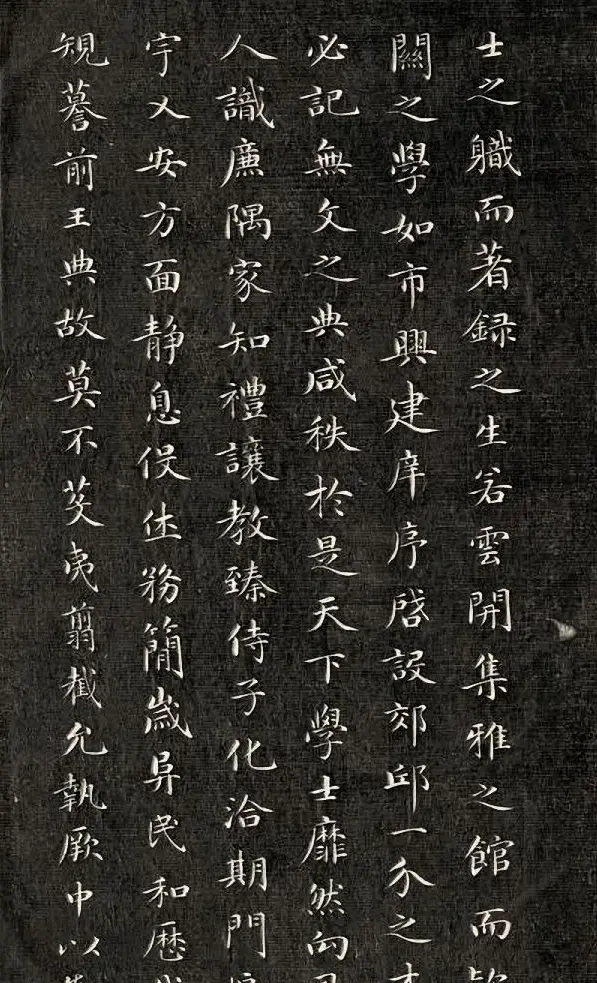 士之職而著錄之生若雲開集雅之館而
闕之學如市興建庠序啓設郊邱一介之才
必記無文之典咸秩於是天下學士靡然向
人識廉隅家知禮讓教臻侍子化洽期門
宇乂安方面靜息役休務簡歲昇民和歷
規摹前王典故莫不芟夷翦截允執厥中以